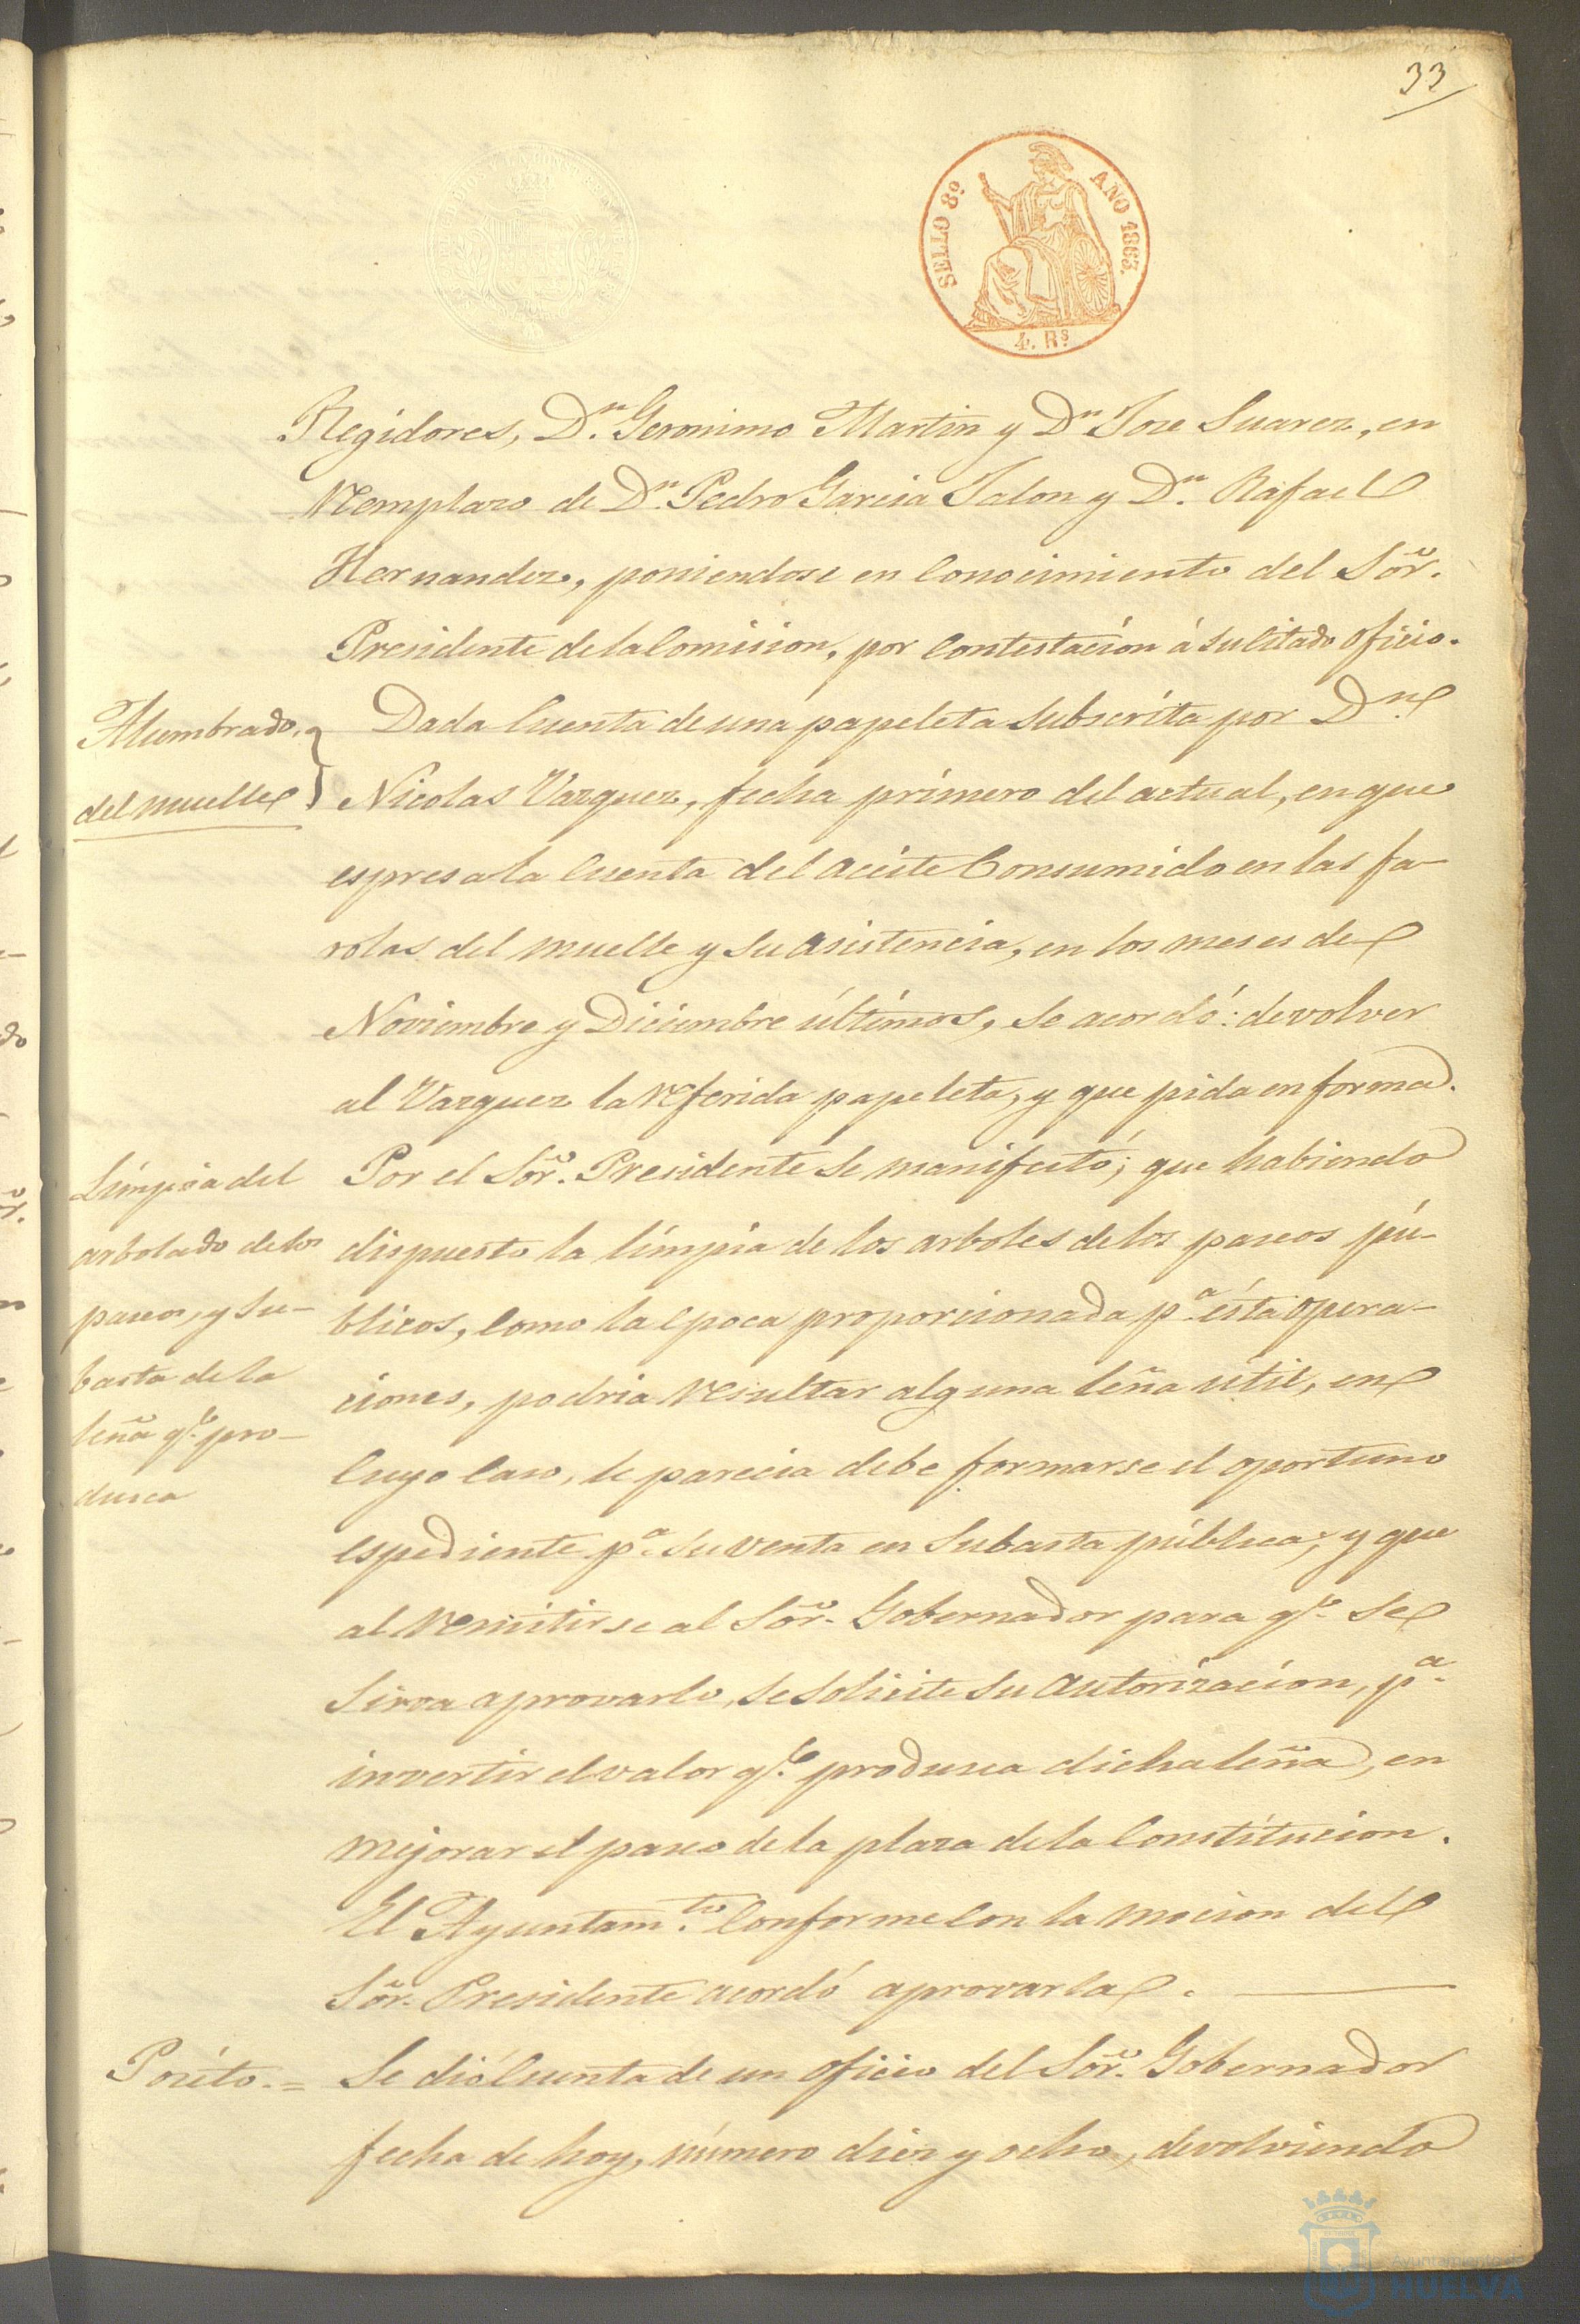 33
SELLO 8º AÑO 1863.
4. Rs
Regidores, Dn. Geronimo Martin y Dn Jose Suarez, en
reemplazo de Dn. Pedro Garcia Jalon y Dn. Rafael
Hernandez, poniendose en conocimiento del Sōr.
Presidente de la Comision, por contestación á su citado oficio.
Alumbrado
del muelle
Dada cuenta de una papeleta subscrita por Dn.
Nicolas Vazquez, fecha primero del actual, en que
espresa la cuenta del aceite consumido en las fa-
rolas del muelle y su asistencia, en los meses de
Noviembre y Diciembre últimos, se acordó: devolver
al Vazquez la referida papeleta, y que pida en forma.
Limpia del
arbolado de los
paseos, y su-
basta de la
leña qe. pro-
dusca
Por el Sōr. Presidente se manifestó; que habiendo
dispuesto la limpia de los arboles de los paseos pú-
blicos, como la epoca proporcionada pa. ésta opera-
ciones, podria resultar alguna leña util, en
cuyo caso, le parecia debe formarse el oportuno
espediente pa. su venta en subasta pública; y que
al remitirse al Sōr. Gobernador para qe. se
sirva aprovarlo, se solicite su autorización, pa.
invertir el valor qe. produsca dicha leña, en
mejorar el paseo de la plaza de la Constitucion.
El Ayuntamto. conforme con la mocion del
Sōr. Presidente acordó aprovarla.
Posito.=
Se dió cuenta de un oficio del Sōr. Gobernador
fecha de hoy, número diez y ocho, devolviendo
Ayuntamiento de
HUELVA